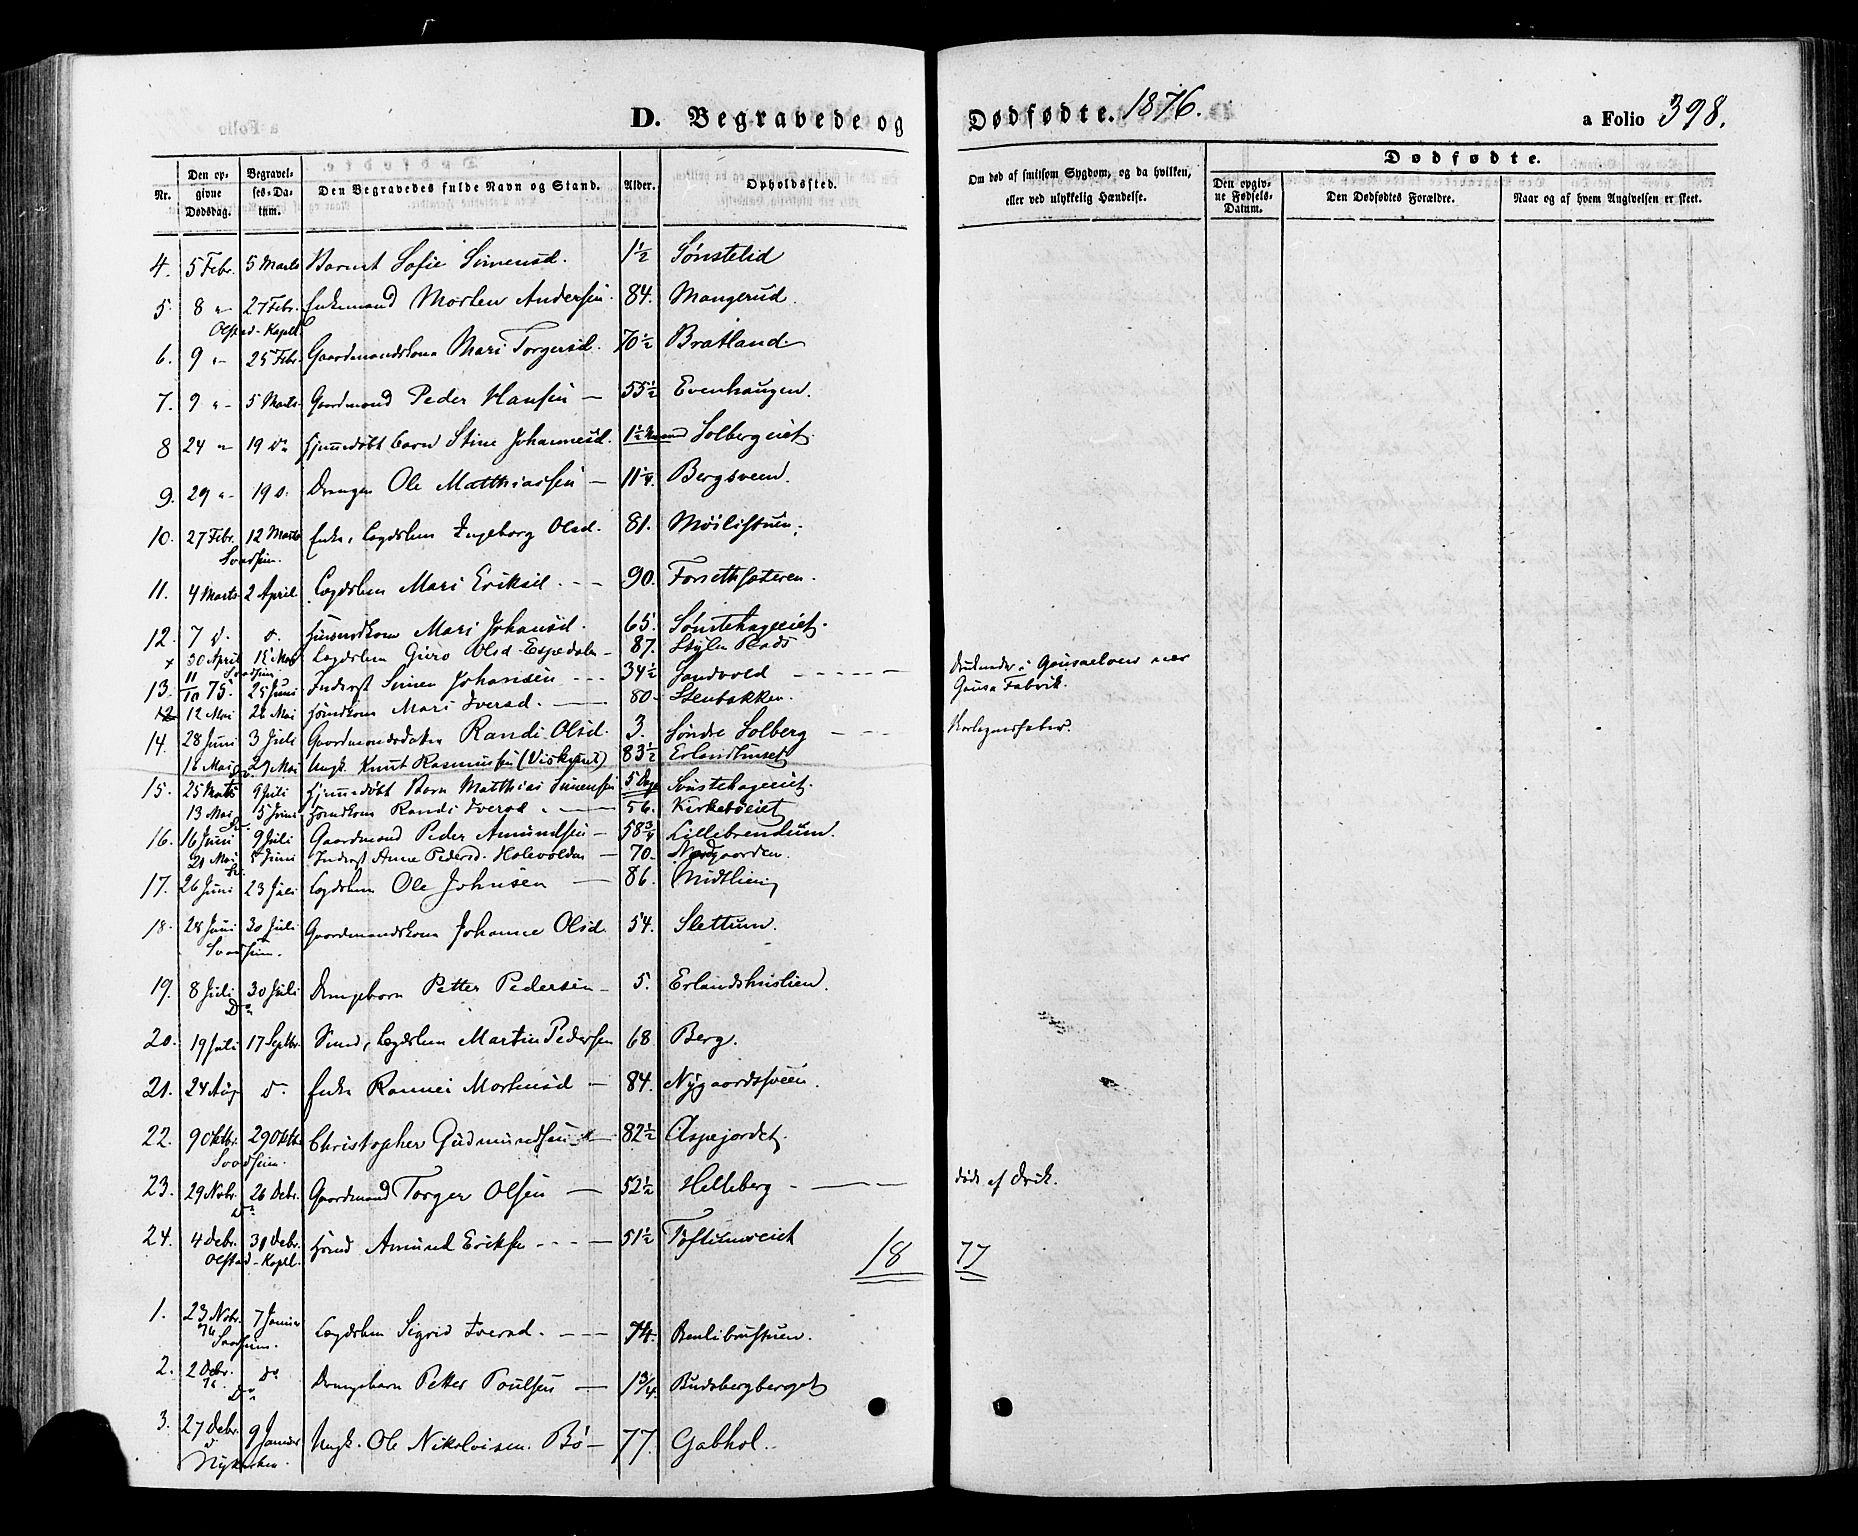 D. Begravede og Dødfødte. 1876. a Folio 398.
Nr. Den opgivne Dødsdag. Begravelses-Datum. Den Begravedes fulde Navn og Stand. Alder. Opholdssted. Om død af smitsom Sygdom, og da hvilken, eller ved ulykkelig Hændelse. Dødfødte.
Den opgivne Fødsels-Datum. Den Dødfødtes Forældre. Naar og af hvem Angivelsen er skeet.
4. 5 Febr. 5 Marts Barnet Sofie Simensd. 1½ Sønstelid
5. 8 " 27 Febr. Enkemand Morten Andersen 84. Mangerud.
Olstad-Kapell.
6. 9 " 25 Febr. Gaardmandskone Mari Torgersd. 70½ Bratland
7. 9 " 5 Marts Gaardmand Peder Hansen — 55½ Evenhaugen.
8 24 " 19 do Hjemmedøbt Barn Stine Johannesd. 1½ Solbergeiet.
9. 29 " 19 d. Drengen Ole Matthiassen — 11¼. Bergsveen.
10. 27 Febr. 12 Marts Enke, Lægdslem Ingeborg Olsd. 81. Möilistuen.
Svadsum.
11. 4 Marts 2 April Lægdslem Mari Eriksd. --- 90. Forsethsæteren.
12. 7 d. d. Huusmdkone Mari Johansd. 65. Sønstehageeiet.
+ 30 April Lægdslem Guro Olsd. Espedalen — 87.
Svadsum
13. 11/10 75. 25 Juni Inderst Simen Johansen --- 34½ Sandvold ----- druknede i Gausaelven nær
Gausa Fabrik.
12 12 Mai 26 Mai Huusmdkone Mari Iversd. — 80 Stenbakken.
14. 28 Juni 3 Juli Gaardmandsdatter Randi Olsd. 3. Søndre Solberg --- Skarlagensfeber.
Mai 29 Mai Ungk. Knut Rasmussen 83½ Erlandhuset
15. 25 Marts 9 Juli Hjemmedøbt Barn Matthias Simensen 5 Dage Sønstehageeiet.
13 Mai 5 Juni Huusmdkone Randi Iversd. — 56. Kirkebøeiet
16. 16 Juni 9 Juli Gaardmand Peder Amundsen — 58¾ Lillebrendum.
21 Mai 5 Juni Inderst Anne Pedersd. Holevolden — 70. Nordgaarden.
17. 26 Juni 23 Juli Lægdslem Ole Johnsen — 86. Midtlien
18. 28 Juni 30 Juli Gaardmandskone Johanne Olsd. 54. Slettum.
Svadsum.
19. 8 Juli 30 Juli Drengebarn Petter Pedersen — 5. Erlandshuslien.
Do
20. 19 Juli 17 Septbr. Svend, Lægdslem Martin Pedersen 68 Berg.
21. 24 Aug d. Enke Rannei Mortensd — 84. Nygaardssveen.
22. 9 Oktbr. 29 Oktbr Christopher Gudmundsen — 82½ Aspejordet.
Svadsum.
23. 29 Novbr. 26 Debr. Gaardmand Torger Olsen — 52½ Helleberg - — døde af Drik.
Do
24. 4 Debr. 31 Debr. Huusmd Amund Eriksen --- 51½
Olstad-Kapel.
18 77
1. 23 Novbr. 76 7 Januar Lægdslem Sigrid Iversd. --- 74. Benlibrustuen.
Svadsum.
2. 2 Debr. 76 do Drengebarn Petter Poulsen — 1¾. Budsbergberget
Do
3. 27 Debr. 9 Januar Ungk. Ole Nikolaisen. Bø — 77. Gabhol.
Nykirken.